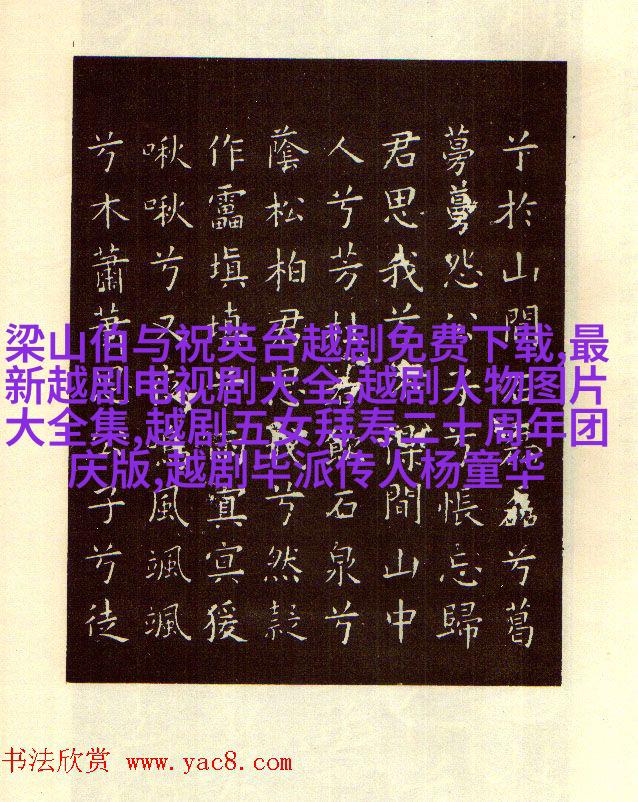 兮於山間石磊磊兮葛
蔓蔓怨公子兮悵忘歸
君思我兮不得間山中
人兮芳杜若飲石泉兮
蔭松柏君思我兮然疑
作靁填填兮雨冥冥猨
啾啾兮又夜鳴風颯颯
兮木蕭蕭思公子兮徒
梁山伯与祝英台越剧免费下载,最
新越剧电视剧大全,越剧人物图片
大全集,越剧五女拜寿二十周年团
庆版,越剧毕派传人杨童华
书法欣赏 www.yac8.com